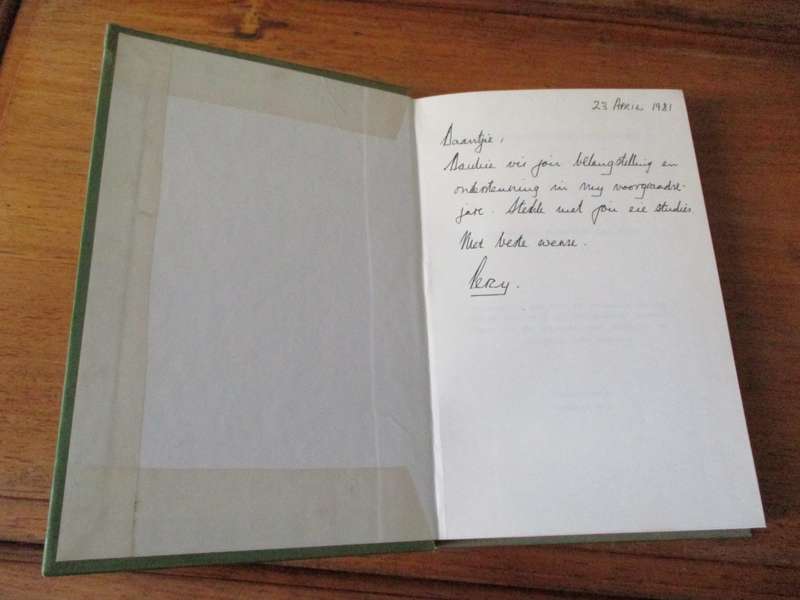 23 APRIL 1981
Daantjie,
Dankie vir jou belangstelling en
ondersteuning in my voorgraadse-
jare. Sterkte met jou eie studies
Met beste wense.